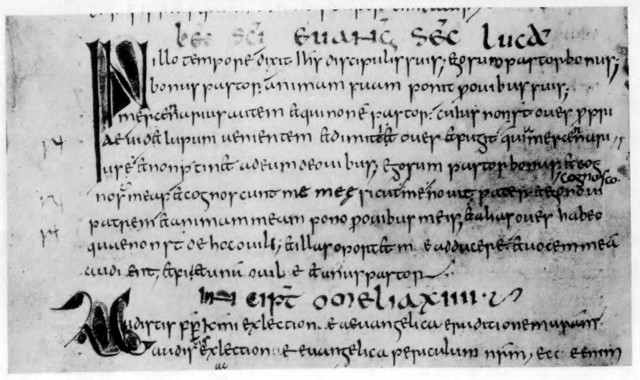 Lec sci evang sec lucæ
In illo tempore dixit ihs discipulis suis; ego sum pastor bonus;
bonus pastor animam suam ponit pro ovibus suis;
mercennarius autem et qui non e pastor. cuius non st oves propri
ae videt lupum venientem et dimittet oves et fugit quia mercennari
us e et non ptinet ad eum de ovibus; ego sum pastor bonus et cog
cognosco
nosco meas et cognoscunt me meę sicut me novit pater et ego novi
patrem et animam meam pono pro ovibus meis; et alias oves habeo
quae non st de hoc ovili; et illas oportet me adducere et vocem meā
audient, et fiet unū ovile et unus pastor
Incipt omelia xiiii.
Audistis frs kmi ex lectione evangelica eruditionem vram
audistis ex lectione evangelica periculum nrm, ecce enim